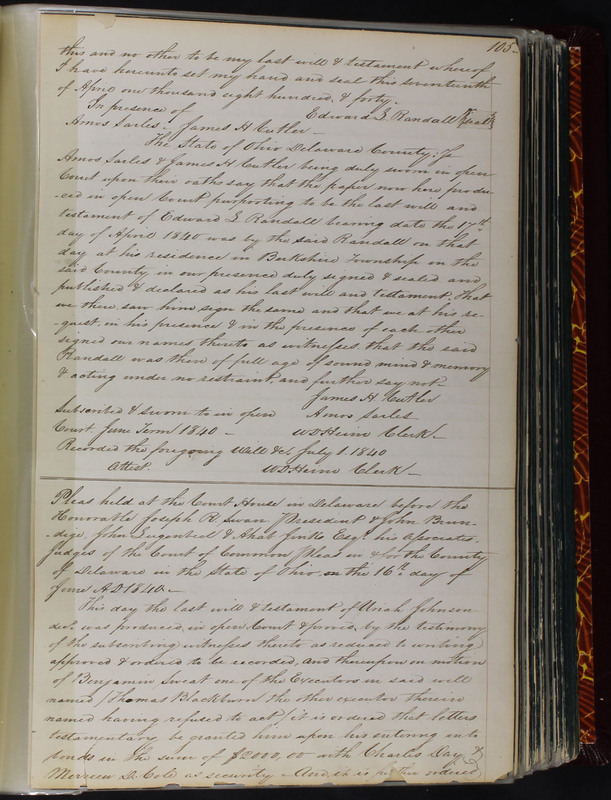 105
this and no other to be my last will & testament whereof
I have hereunto set my hand and seal this seventeenth
of April one thousand eight hundred & forty.
In presence of Edward S. Randall Seal
Amos Sarles - James H Cutler -
The State of Ohio Delaware County: Ss
Amos Sarles & James H Cutler being duly sworn in open
Court upon their oaths say that the paper now here produ-
-ced in open Court purporting to be the last will and
testament of Edward S. Randall bearing date the 17th
day of April 1840 was by the said Randall on that
day at his residence in Berkshire Township in the
said County in our presence duly signed & sealed and
published & declared as his last will and testament, that
we there saw him sign the same and that we at his re-
-quest, in his presence & in the presence of each other
signed our names thereto as witnesses, that the said
Randall was then of full age of sound mind & memory
& acting under no restraint, and further say not -
James H Cutler
Subscribed & sworn to in open Amos Sarles
Court. June Term 1840 - W D Heim Clerk -
Recorded the foregoing Will &c July 1. 1840
Attest W D Heim Clerk -
Pleas held at the Court House in Delaware before the
Honorable Joseph R. Swan President & John Brun-
-dige, John Lugenbeel & Ahab Jinks Esqs his Associates
Judges of the Court of Common Pleas in & for the County
of Delaware in the State of Ohio on the 16th day of
June AD 1840 -
This day the last will & testament of Uriah Johnson
decd was produced in open Court & proved by the testimony
of the subscribing witnesses thereto as reduced to writing
approved & ordered to be recorded, and thereupon on motion
of Benjamin Sweat one of the Executors in said will
named (Thomas Blackburn the other executor therein
named having refused to act) it is ordered that letters
testamentary be granted him upon his entering into
bonds in the sum of $2000,00 with Charles Day &
D. Cole as security - And it is further ordered